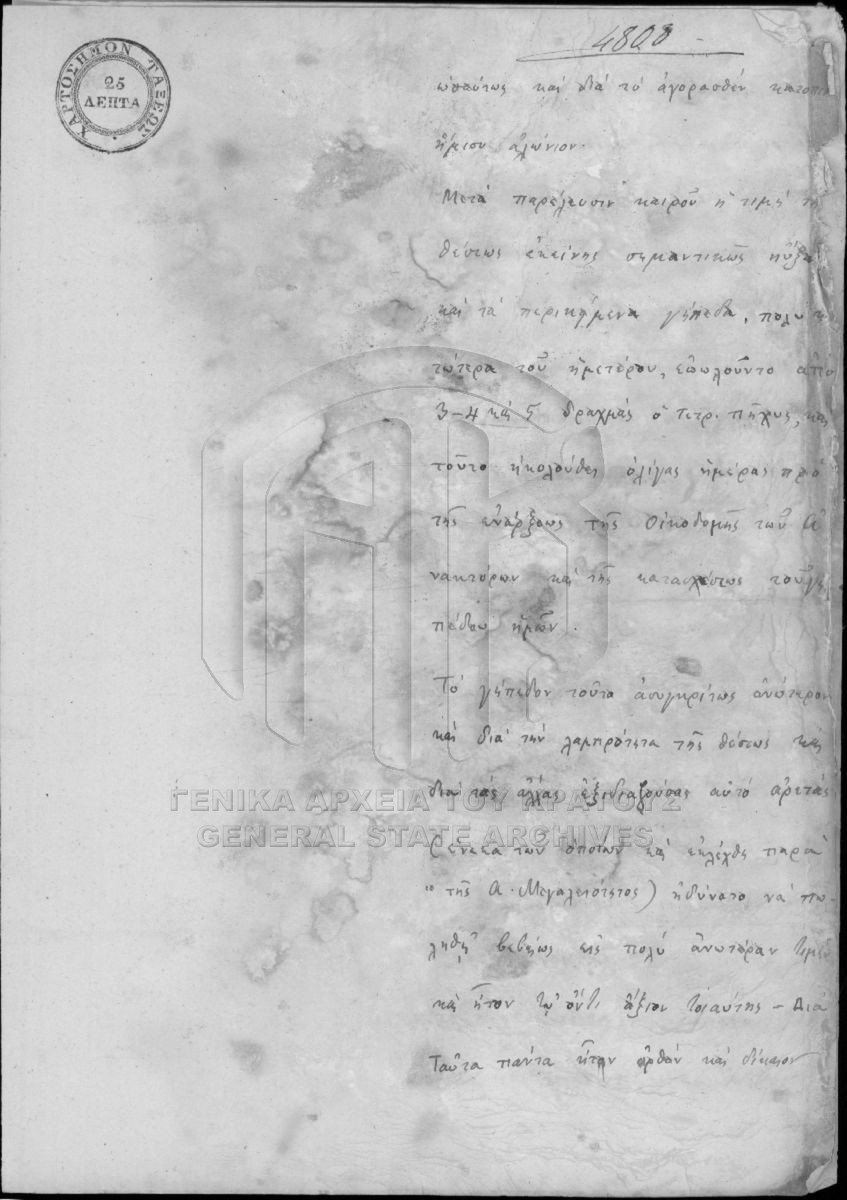 4808
ΧΑΡΤΟΣΗΜΟΝ ΤΑΞΕΩΣ
25
ΛΕΠΤΑ
ὡσαύτως καὶ διὰ τὸ ἀγορασθὲν κατόπιν
ἥμισυ ἁλώνιον.
Μετὰ παρέλευσιν καιροῦ ἡ τιμὴ τῆς
θέσεως ἐκείνης σημαντικῶς ηὔξα
καὶ τὰ περικείμενα γήπεδα, πολὺ κα
τώτερα τοῦ ἡμετέρου, ἐπωλοῦντο ἀπὸ
3-4 καὶ 5 δραχμὰς ὁ τετρ. πῆχυς, καὶ
τοῦτο ἠκολούθει ὀλίγας ἡμέρας πρὸ
τῆς ἐνάρξεως τῆς Οἰκοδομῆς τῶν Ἀ
νακτόρων καὶ τῆς κατασχέσεως τοῦ γη
πέδου ἡμῶν.
Τὸ γήπεδον τοῦτο ἀσυγκρίτως ἀνώτερον
καὶ διὰ τὴν λαμπρότητα τῆς θέσεως καὶ
διὰ τὰς ἄλλας ἐξιδιαζούσας αὐτὸ ἀρετὰς
(ἕνεκα τῶν ὁποίων καὶ ἐκλέχθη παρὰ
τῆς Α. Μεγαλειότητος) ἠδύνατο νὰ πω-
ληθῇ βεβαίως εἰς πολὺ ἀνωτέραν τιμὴν
καὶ ἦτον τῷ ὄντι ἄξιον τοιαύτης – Διὰ
ταῦτα πάντα ἦτον ὀρθὸν καὶ δίκαιον
ΓΕΝΙΚΑ ΑΡΧΕΙΑ ΤΟΥ ΚΡΑΤΟΥΣ
GENERAL STATE ARCHIVES